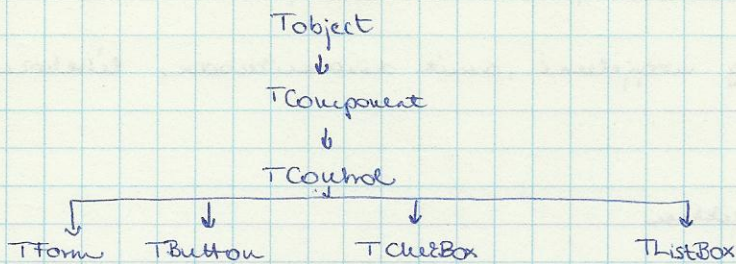 Tobject
TComponent
TControl
TForm TButton TChekBox TListBox